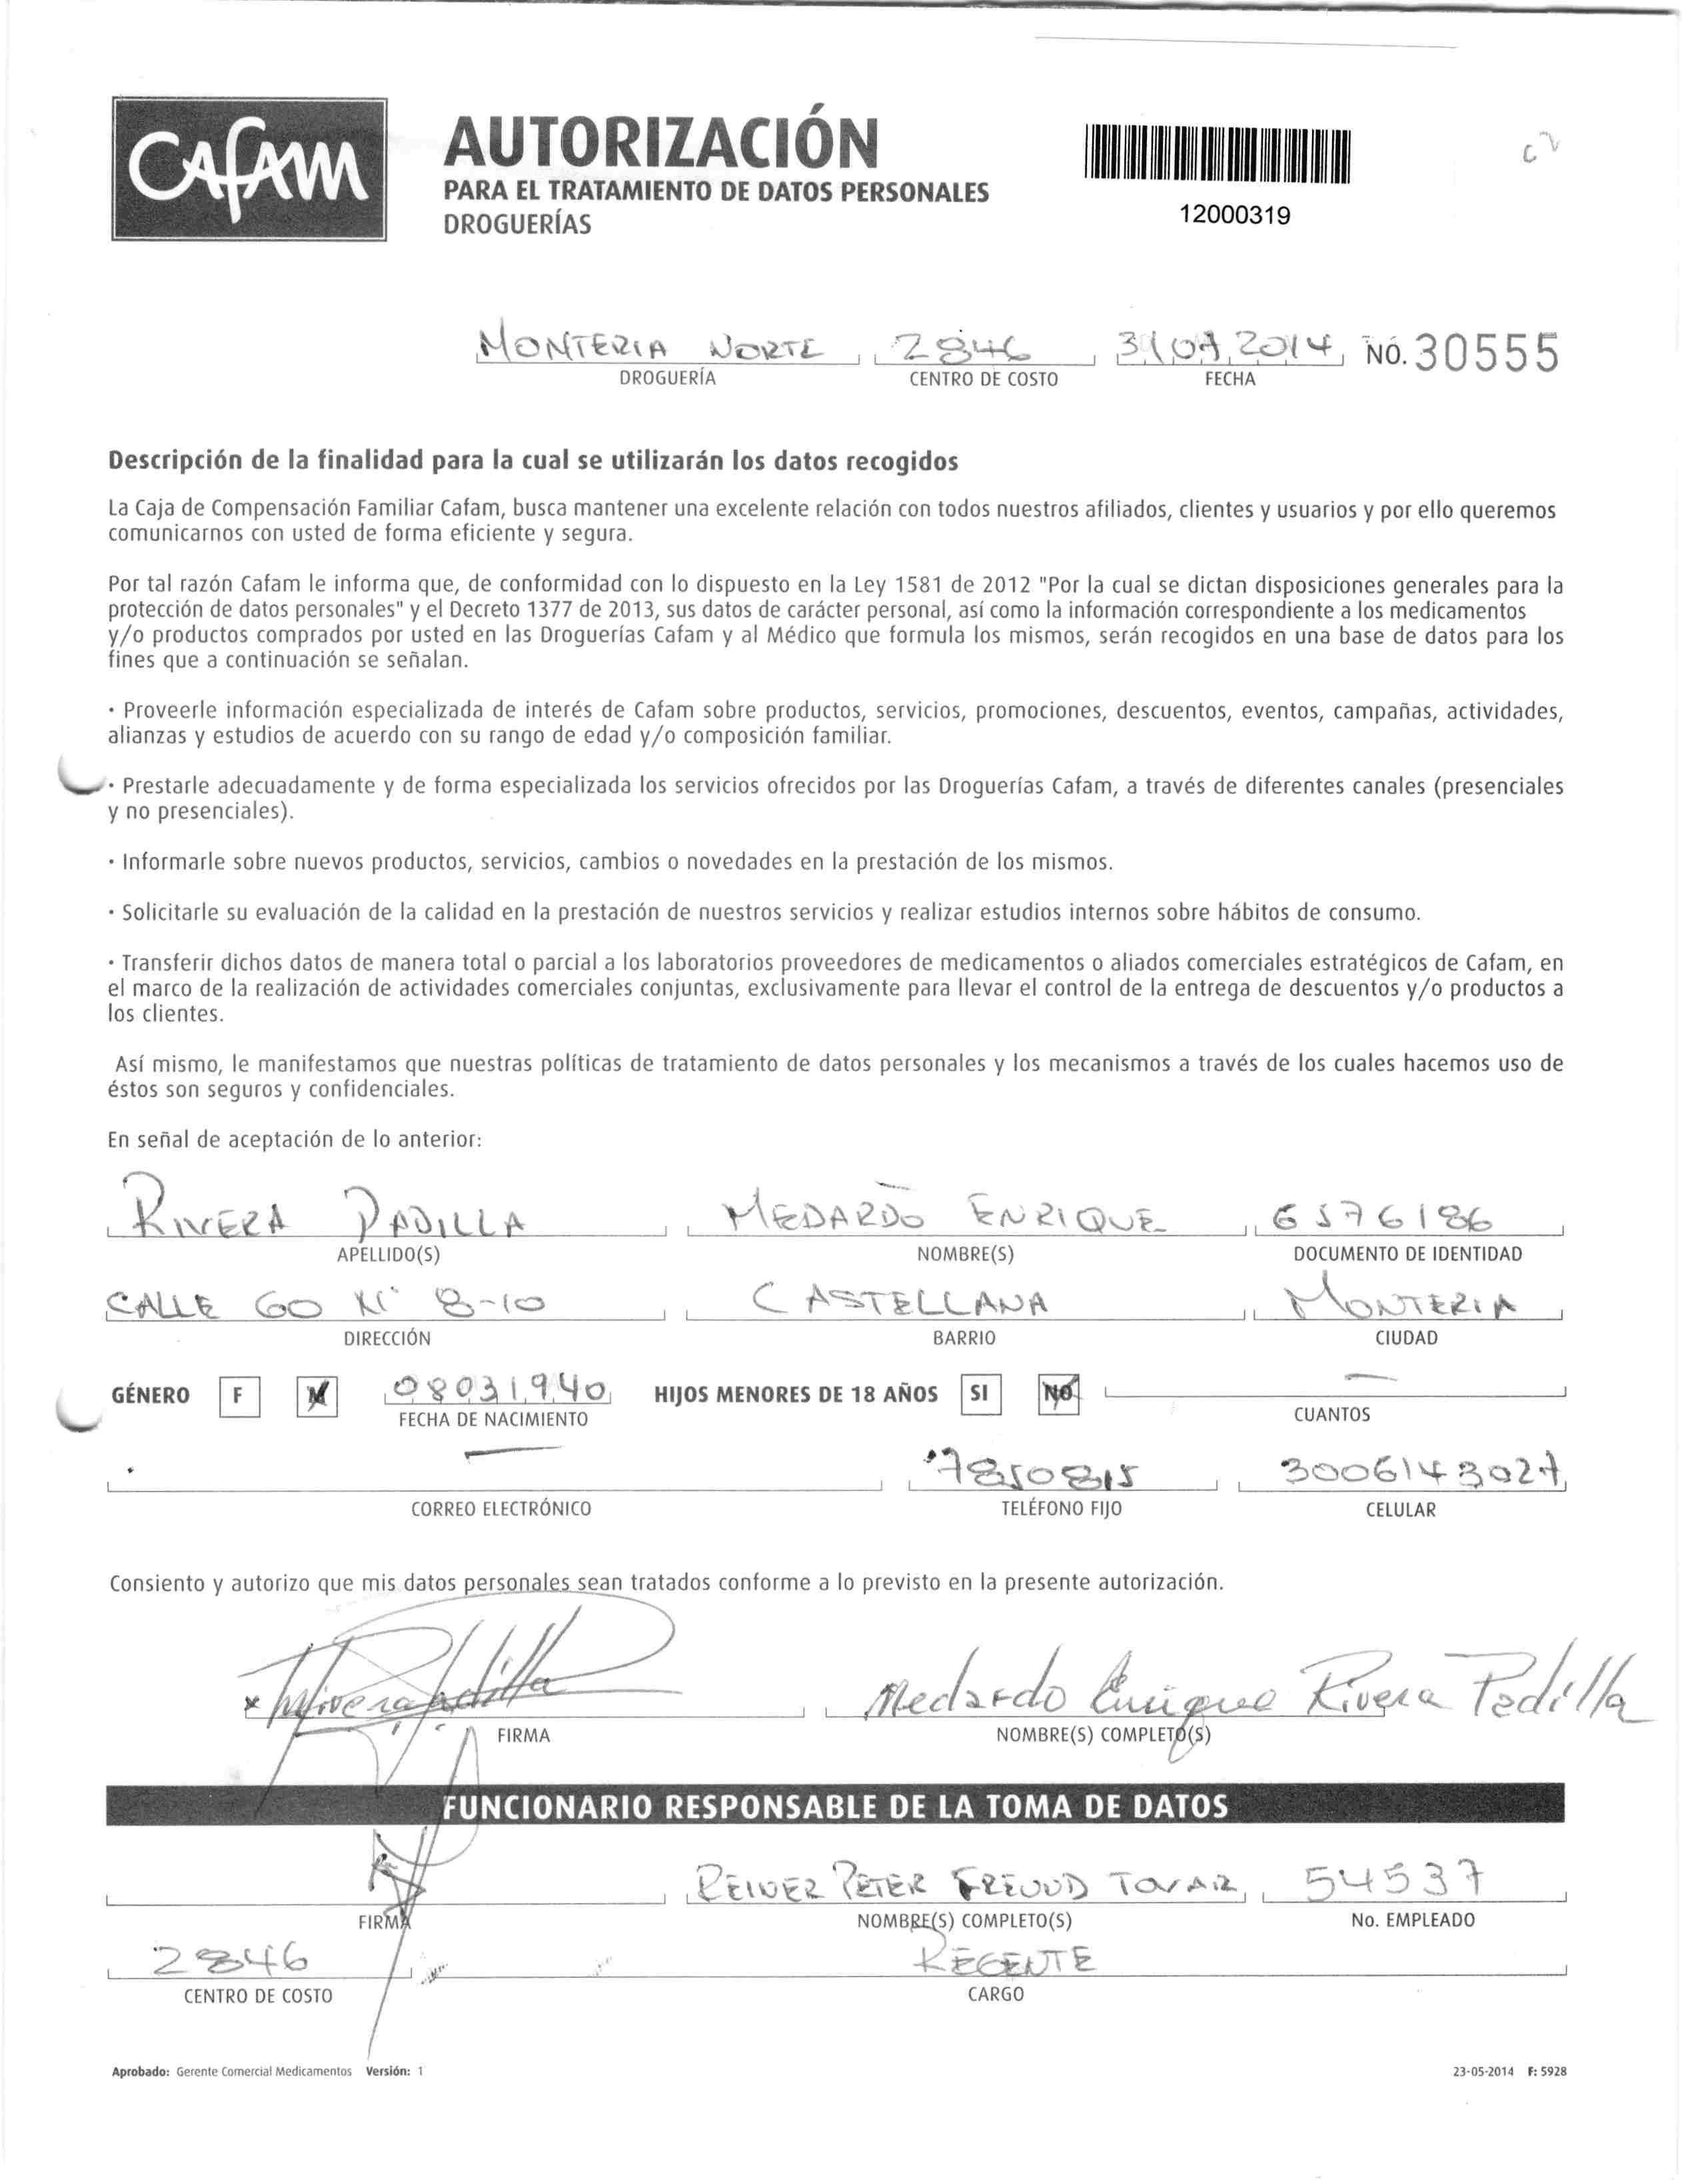 CAFAM
AUTORIZACIÓN
PARA EL TRATAMIENTO DE DATOS PERSONALES
DROGUERÍAS
12000319
MONTERIA NORTE 2846 31 07 2014 NO. 30555
DROGUERÍA CENTRO DE COSTO FECHA
Descripción de la finalidad para la cual se utilizarán los datos recogidos
La Caja de Compensación Familiar Cafam, busca mantener una excelente relación con todos nuestros afiliados, clientes y usuarios y por ello queremos
comunicarnos con usted de forma eficiente y segura.
Por tal razón Cafam le informa que, de conformidad con lo dispuesto en la Ley 1581 de 2012 "Por la cual se dictan disposiciones generales para la
protección de datos personales" y el Decreto 1377 de 2013, sus datos de carácter personal, así como la información correspondiente a los medicamentos
y/o productos comprados por usted en las Droguerías Cafam y al Médico que formula los mismos, serán recogidos en una base de datos para los
fines que a continuación se señalan.
· Proveerle información especializada de interés de Cafam sobre productos, servicios, promociones, descuentos, eventos, campañas, actividades,
alianzas y estudios de acuerdo con su rango de edad y/o composición familiar.
· Prestarle adecuadamente y de forma especializada los servicios ofrecidos por las Droguerías Cafam, a través de diferentes canales (presenciales
y no presenciales).
· Informarle sobre nuevos productos, servicios, cambios o novedades en la prestación de los mismos.
· Solicitarle su evaluación de la calidad en la prestación de nuestros servicios y realizar estudios internos sobre hábitos de consumo.
· Transferir dichos datos de manera total o parcial a los laboratorios proveedores de medicamentos o aliados comerciales estratégicos de Cafam, en
el marco de la realización de actividades comerciales conjuntas, exclusivamente para llevar el control de la entrega de descuentos y/o productos a
los clientes.
Así mismo, le manifestamos que nuestras políticas de tratamiento de datos personales y los mecanismos a través de los cuales hacemos uso de
éstos son seguros y confidenciales.
En señal de aceptación de lo anterior:
RIVERA PADILLA MEDARDO ENRIQUE 6576186
APELLIDO(S) NOMBRE(S) DOCUMENTO DE IDENTIDAD
CALLE 60 N° 8-10 CASTELLANA MONTERIA
DIRECCIÓN BARRIO CIUDAD
GÉNERO F M 08031940 HIJOS MENORES DE 18 AÑOS SI NO —
FECHA DE NACIMIENTO CUANTOS
— 7850815 3006143027
CORREO ELECTRÓNICO TELÉFONO FIJO CELULAR
Consiento y autorizo que mis datos personales sean tratados conforme a lo previsto en la presente autorización.
Medardo Enrique Rivera Padilla
FIRMA NOMBRE(S) COMPLETO(S)
FUNCIONARIO RESPONSABLE DE LA TOMA DE DATOS
PETER TOVAR 54537
FIRMA NOMBRE(S) COMPLETO(S) No. EMPLEADO
2846 REGENTE
CENTRO DE COSTO CARGO
Aprobado: Gerente Comercial Medicamentos Versión: 1 23-05-2014 F: 5928